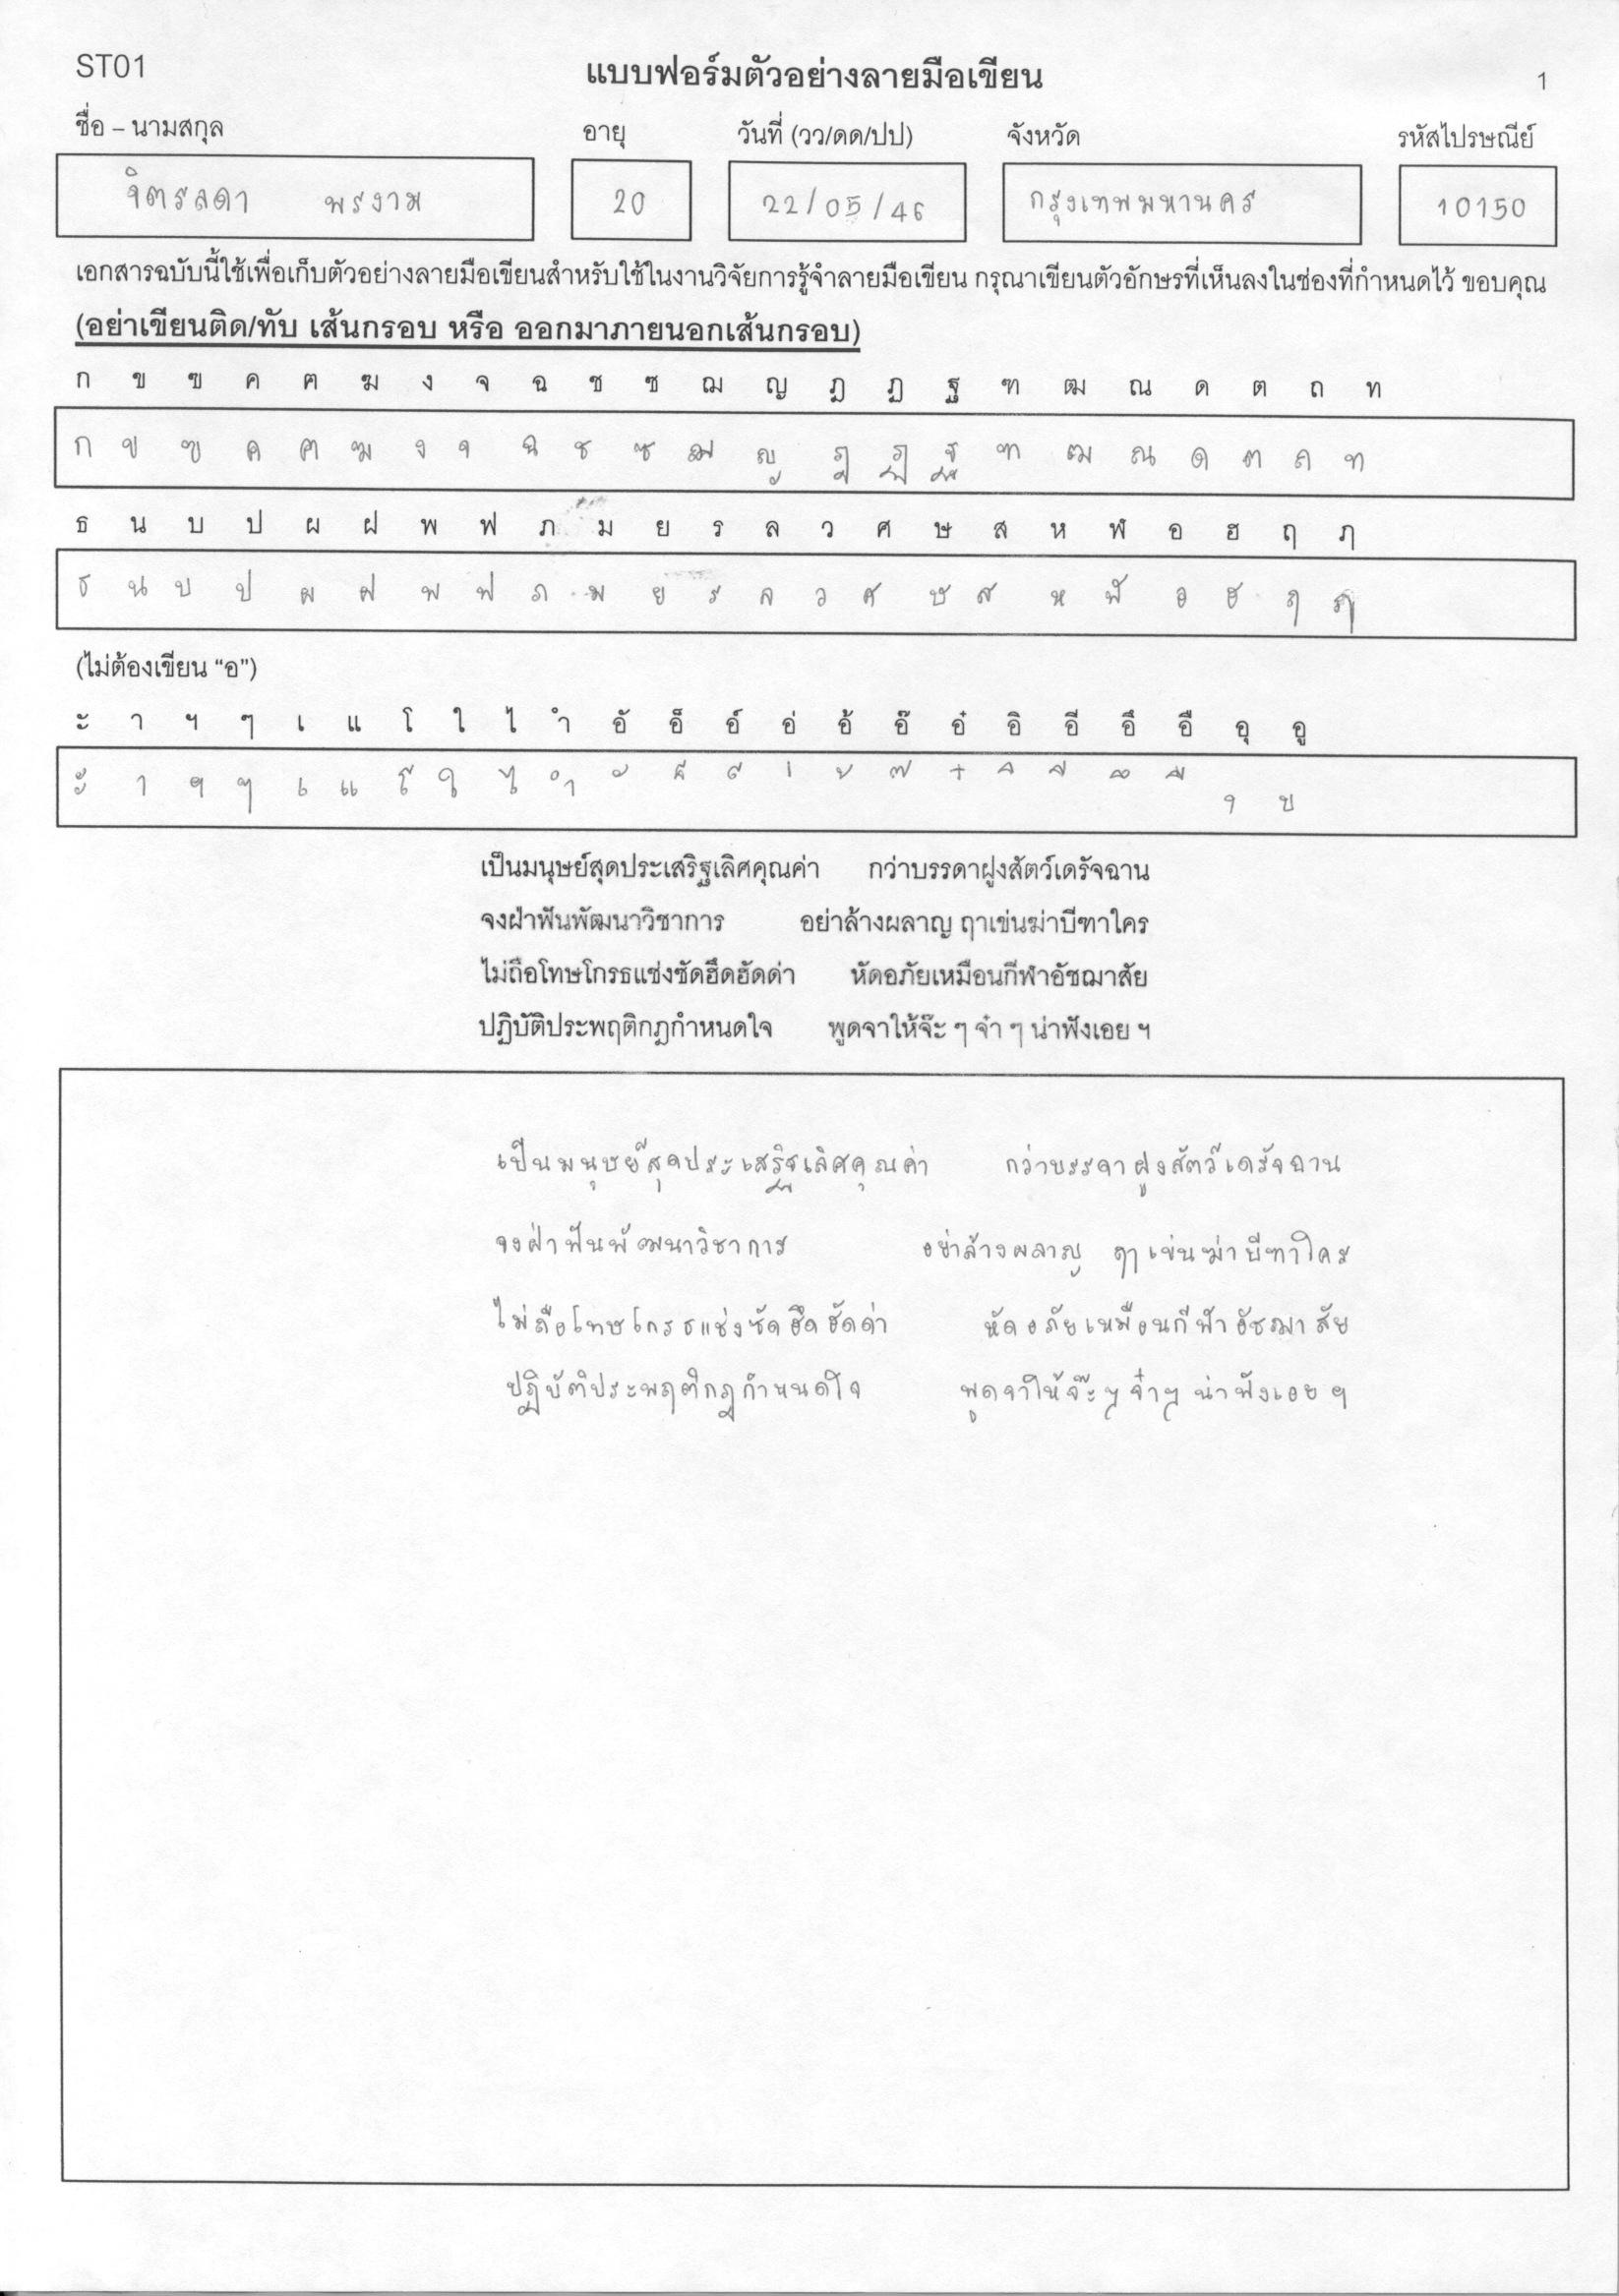 ST01 แบบฟอร์มตัวอย่างลายมือเขียน 1
ชื่อ – นามสกุล อายุ วันที่ (วว/ดด/ปป) จังหวัด รหัสไปรษณีย์
จิตรลดา พรงาม 20 22/05/46 กรุงเทพมหานคร 10150
เอกสารฉบับนี้ใช้เพื่อเก็บตัวอย่างลายมือเขียนสำหรับใช้ในงานวิจัยการรู้จำลายมือเขียน กรุณาเขียนตัวอักษรที่เห็นลงในช่องที่กำหนดไว้ ขอบคุณ
(อย่าเขียนติด/ทับ เส้นกรอบ หรือ ออกมาภายนอกเส้นกรอบ)
ก ข ฃ ค ฅ ฆ ง จ ฉ ช ซ ฌ ญ ฎ ฏ ฐ ฑ ฒ ณ ด ต ถ ท
ก ข ฃ ค ฅ ฆ ง จ ฉ ช ซ ฌ ญ ฎ ฏ ฐ ฑ ฒ ณ ด ต ถ ท
ธ น บ ป ผ ฝ พ ฟ ภ ม ย ร ล ว ศ ษ ส ห ฬ อ ฮ ฤ ฦ
ธ น บ ป ผ ฝ พ ฟ ภ ม ย ร ล ว ศ ษ ส ห ฬ อ ฮ ฤ ฦ
(ไม่ต้องเขียน “อ”)
ะ า ฯ ๆ เ แ โ ใ ไ ำ อั อ็ อ์ อ่ อ้ อ๊ อ๋ อิ อี อึ อื อุ อู
ะ า ฯ ๆ เ แ โ ใ ไ ำ ั ็ ์ ่ ้ ๊ ๋ ิ ี ึ ื ุ ู
เป็นมนุษย์สุดประเสริฐเลิศคุณค่า กว่าบรรดาฝูงสัตว์เดรัจฉาน
จงฝ่าฟันพัฒนาวิชาการ อย่าล้างผลาญ ฤาเข่นฆ่าบีฑาใคร
ไม่ถือโทษโกรธแช่งซัดฮึดฮัดด่า หัดอภัยเหมือนกีฬาอัชฌาสัย
ปฏิบัติประพฤติกฎกำหนดใจ พูดจาให้จ๊ะ ๆ จ๋า ๆ น่าฟังเอย ฯ
เป็นมนุษย์สุดประเสริฐเลิศคุณค่า กว่าบรรดาฝูงสัตว์เดรัจฉาน
จงฝ่าฟันพัฒนาวิชาการ อย่าล้างผลาญ ฤาเข่นฆ่าบีฑาใคร
ไม่ถือโทษโกรธแช่งซัดฮึดฮัดด่า หัดอภัยเหมือนกีฬาอัชฌาสัย
ปฏิบัติประพฤติกฎกำหนดใจ พูดจาให้จ๊ะๆ จ๋าๆ น่าฟังเอย ฯ